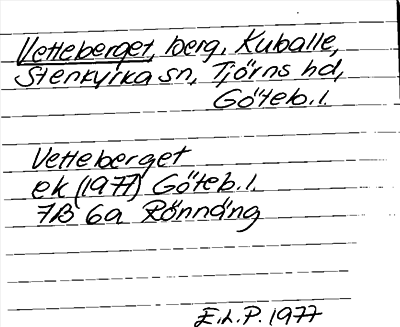 Vetteberget, berg, Kuballe,
Stenkyrka sn, Tjörns hd,
Göteb.l.
Vetteberget
ek (1977) Göteb.l.
7B 6a Rönnäng
E.L.P. 1977